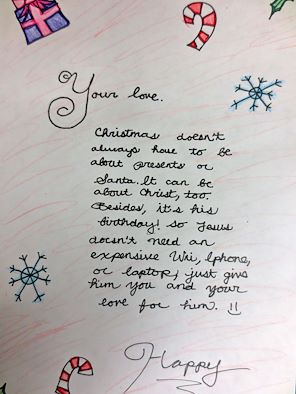 Your love.
Christmas doesn't
always have to be
about presents or
Santa. It can be
about Christ, too.
Besides, it's his
birthday! So Jesus
doesn't need an
expensive Wii, Iphone,
or laptop; just give
him you and your
love for him. !!
Happy